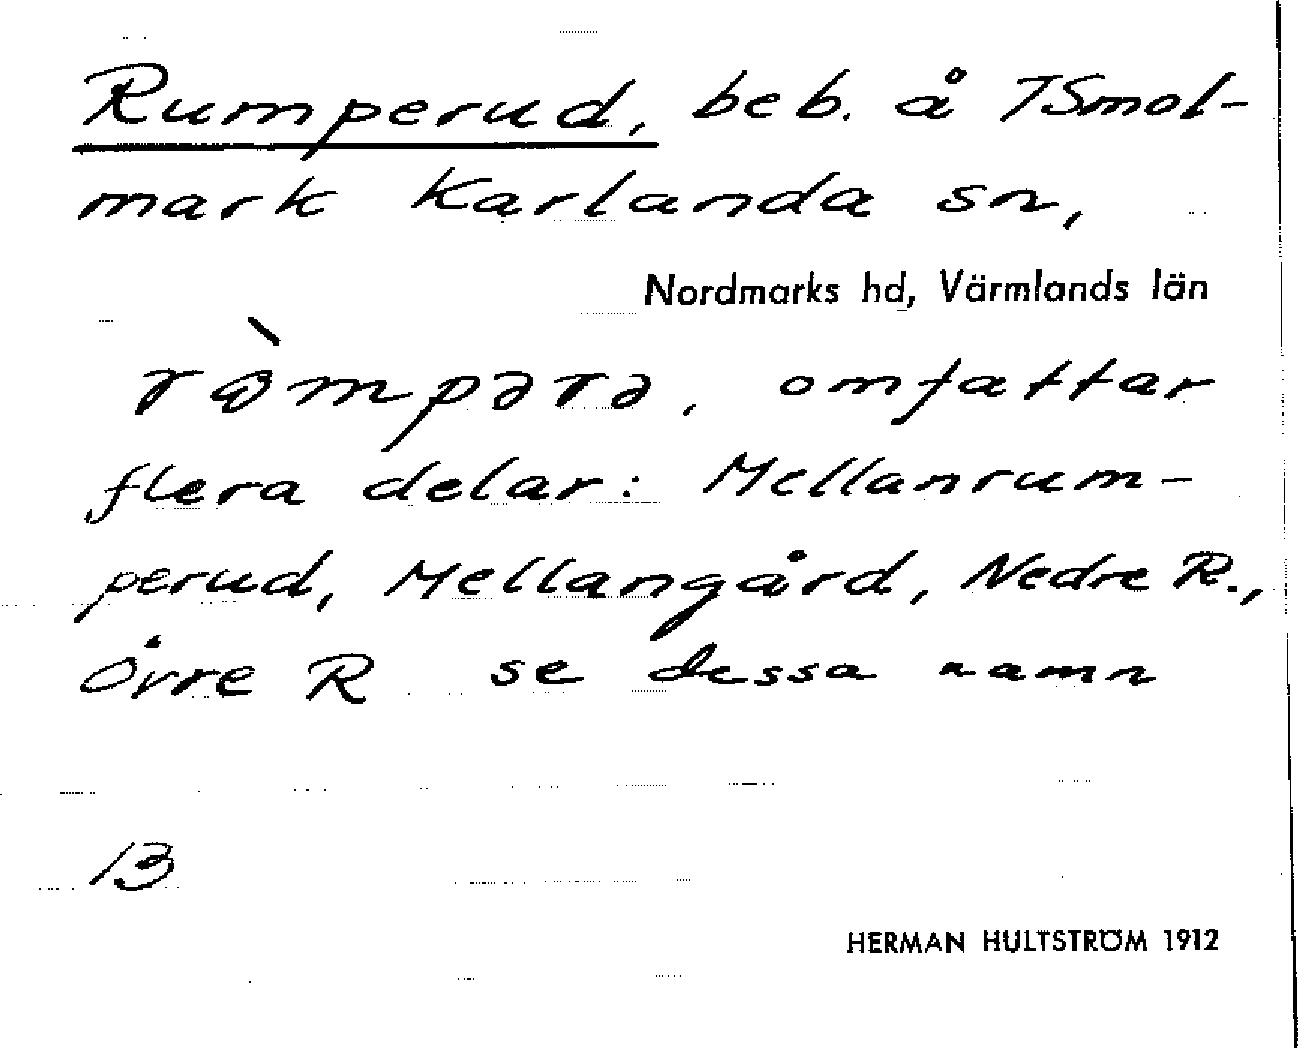 Rumperud, beb. å TSmol-
mark Karlanda sn,
Nordmarks hd, Värmlands län
omfattar
flera delar: Mellanrum-
perud, Mellangård, Nedre R.,
Övre R se dessa namn
13
HERMAN HULTSTRÖM 1912